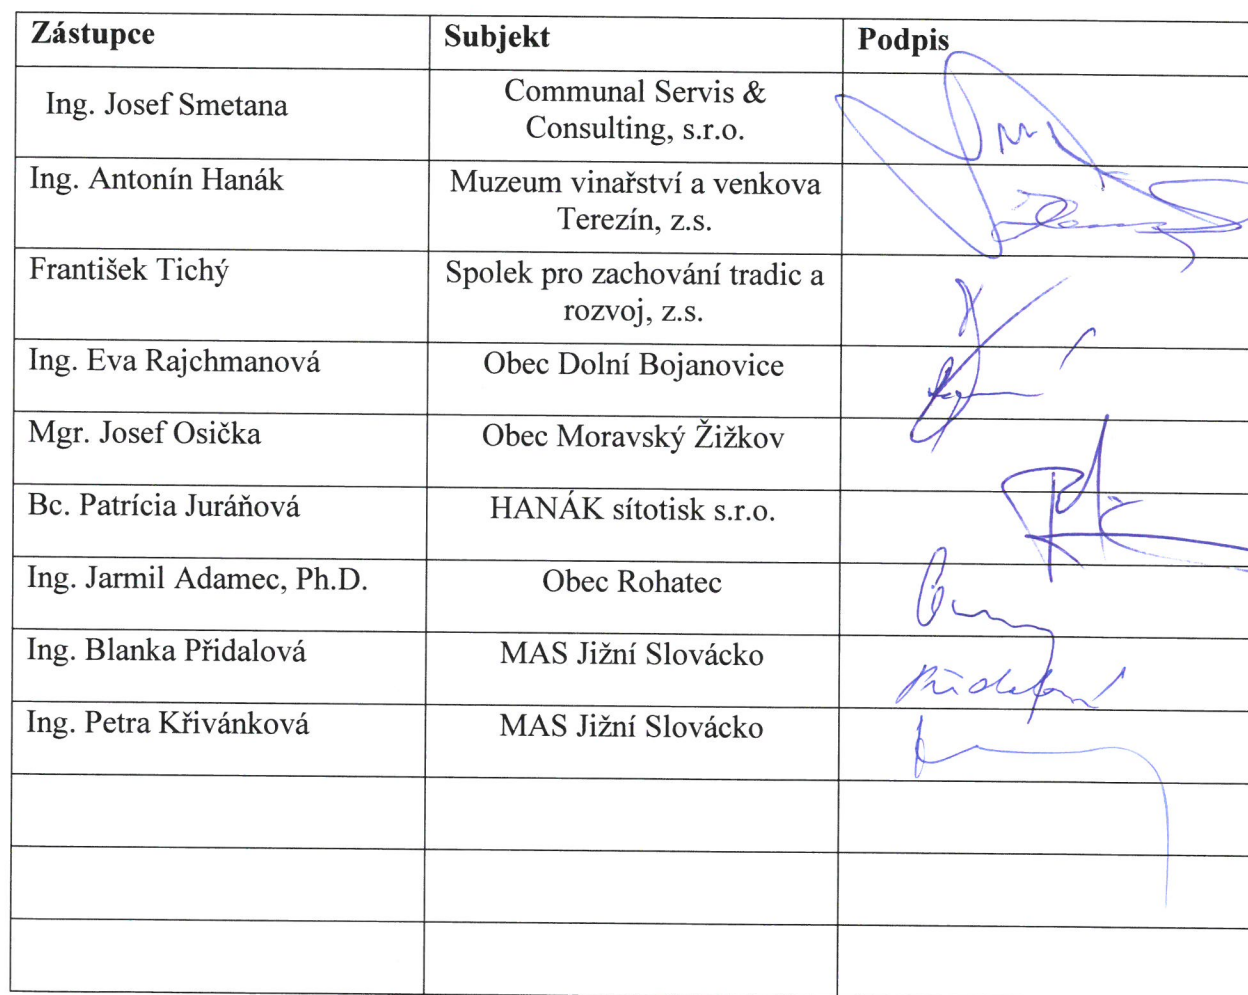 Zástupce Subjekt Podpis
Ing. Josef Smetana Communal Servis &
Consulting, s.r.o.
Ing. Antonín Hanák Muzeum vinařství a venkova
Terezín, z.s.
František Tichý Spolek pro zachování tradic a
rozvoj, z.s.
Ing. Eva Rajchmanová Obec Dolní Bojanovice
Mgr. Josef Osička Obec Moravský Žižkov
Bc. Patrícia Juráňová HANÁK sítotisk s.r.o.
Ing. Jarmil Adamec, Ph.D. Obec Rohatec
Ing. Blanka Přidalová MAS Jižní Slovácko
Ing. Petra Křivánková MAS Jižní Slovácko